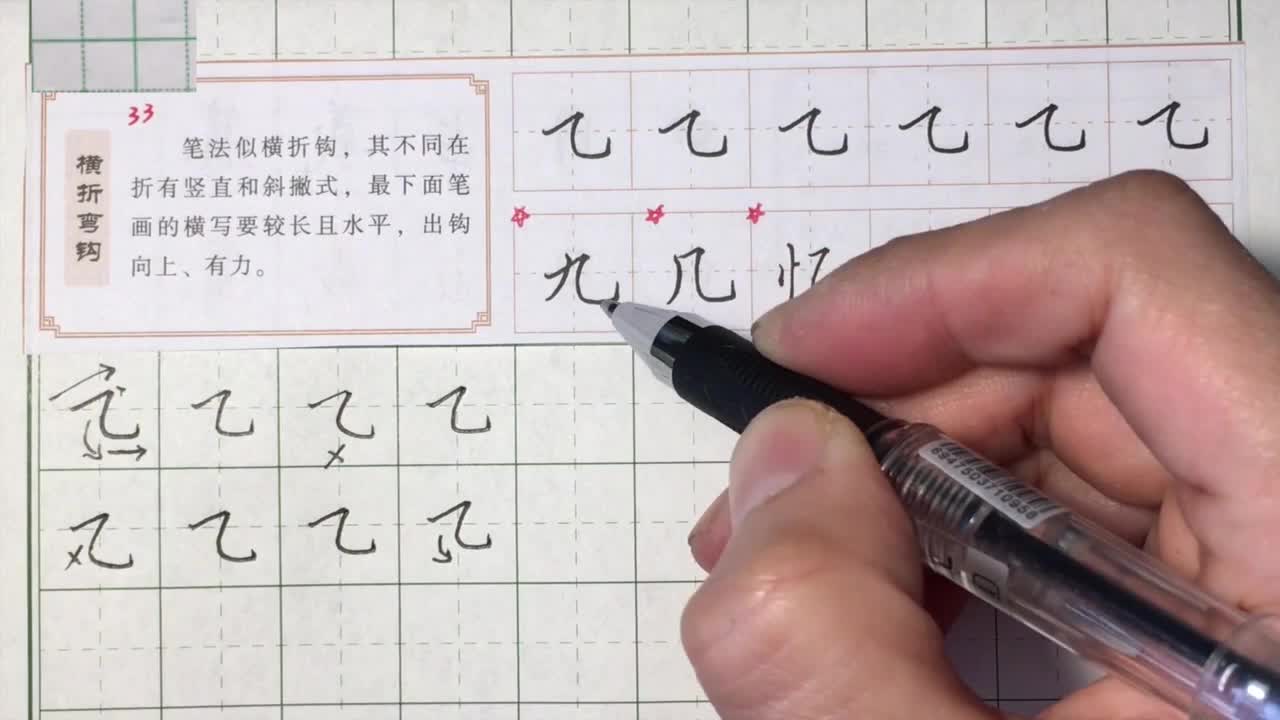 33
横折弯钩
笔法似横折钩，其不同在
折有竖直和斜撇式，最下面笔
画的横写要较长且水平，出钩
向上、有力。
乙 乙 乙 乙 乙 乙
九 几 忆
乙 乙 乙 乙
×
乙 乙 乙 乙
×
6947503710956